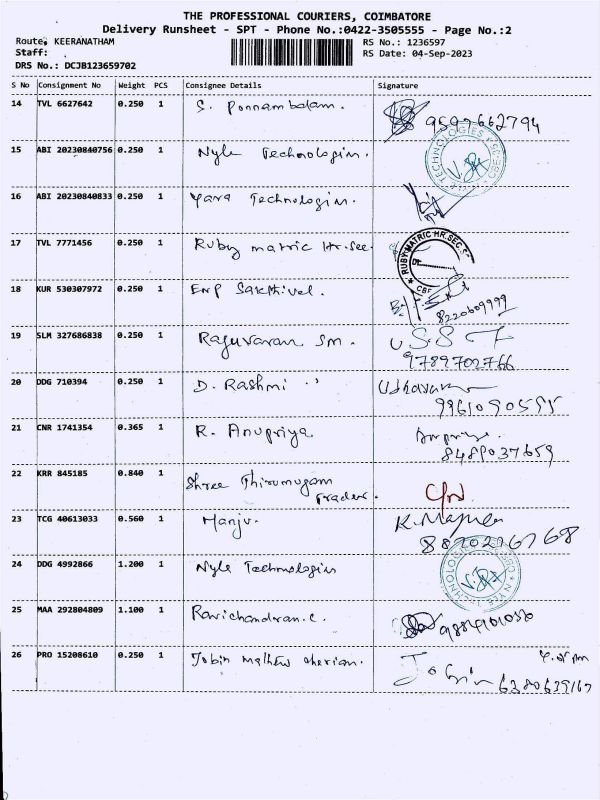 THE PROFESSIONAL COURIERS, COIMBATORE
Delivery Runsheet - SPT - Phone No.:0422-3505555 - Page No.:2
Route: KEERANATHAM RS No.: 1236597
Staff: RS Date: 04-Sep-2023
DRS No.: DCJB123659702
S No Consignment No Weight PCS Consignee Details Signature
14 TVL 6627642 0.250 1 S. Ponnambalam.
15 ABI 20230840756 0.250 1 Nyle Technologies.
16 ABI 20230840833 0.250 1 Yara Technologies.
17 TVL 7771456 0.250 1 Ruby matric Hr.Sec. RUBY MATRIC HR.SEC.
18 KUR 530307972 0.250 1 Erp Sakthivel. 8220609999
19 SLM 327686838 0.250 1 Raguvaran Sm.
9789702766
20 DDG 710394 0.250 1 D. Rashmi
21 CNR 1741354 0.365 1 R. Anupriya
8489037659
22 KRR 845185 0.840 1 Shree Thirumugam
Traders.
23 TCG 40613033 0.560 1 Manju.
24 DDG 4992866 1.200 1 Nyle Technologies
25 MAA 292804809 1.100 1 Ravichandran.C.
26 PRO 15208610 0.250 1 Jobin mathew cherian. Jobin 6380639167